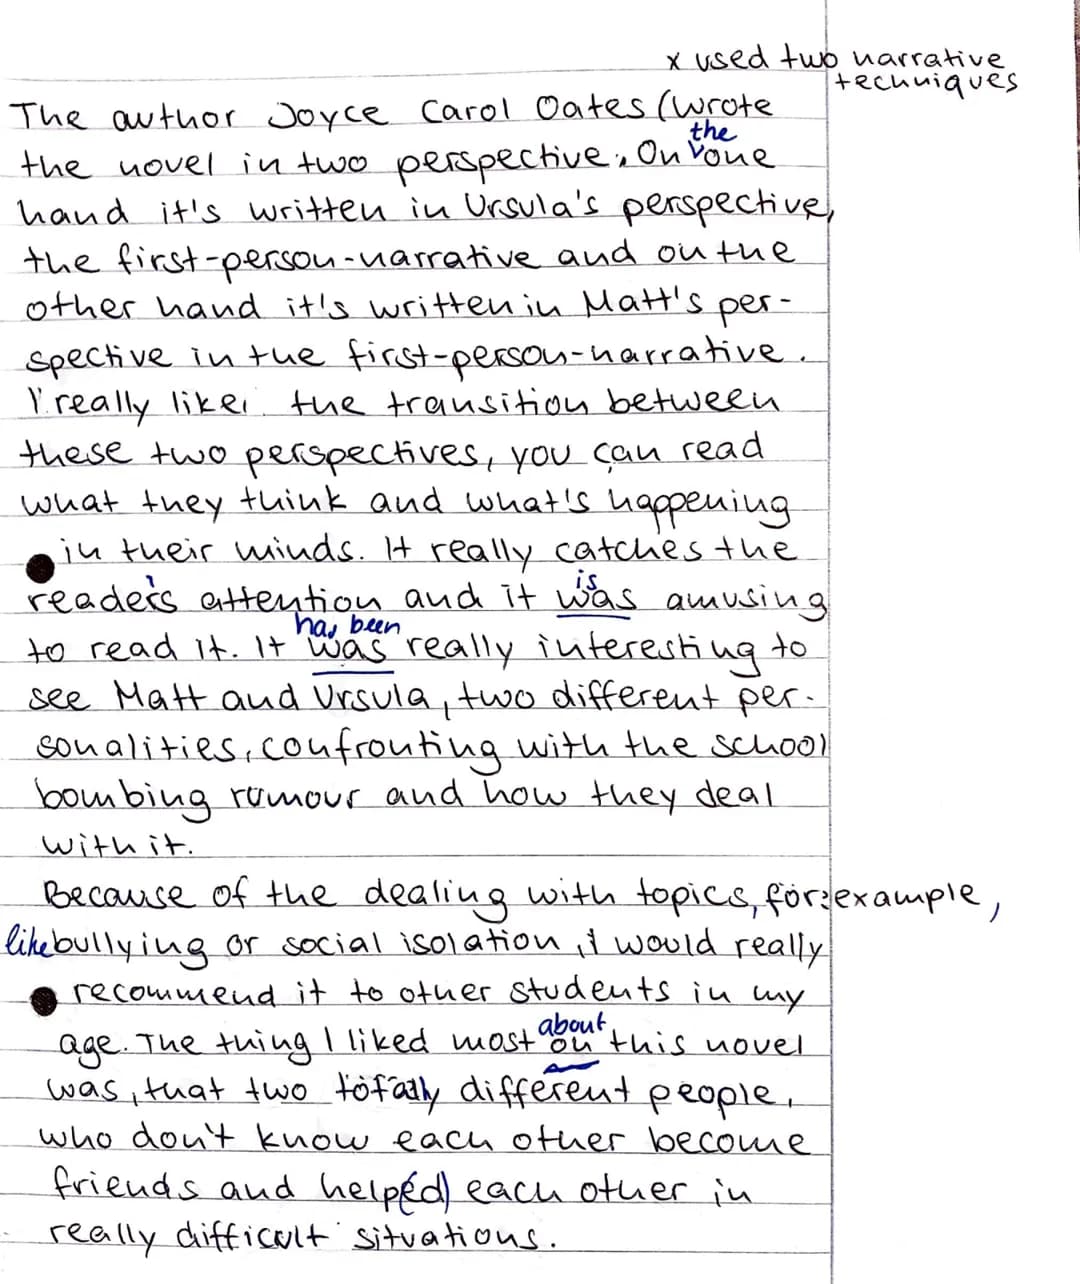 x used two narrative
techniques
The author Joyce Carol Oates (wrote
the
the novel in two perspective. On v one
hand it's written in Ursula's perspective,
the first-person-narrative and on the
other hand it's written in Matt's per-
spective in the first-person-narrative.
I really like the transition between
these two perspectives, you can read
what they think and what's happening
in their minds. It really catches the
is
reader's attention and it was amusing
has been
to read it. It was really interesting to
see Matt and Ursula, two different per-
sonalities, confronting with the school
bombing rumour and how they deal
with it.
Because of the dealing with topics, for example,
like bullying or social isolation, I would really
recommend it to other students in my
about
age. The thing I liked most on this novel
was, that two totally different people,
who don't know each other become
friends and help(ed) each other in
really difficult situations.